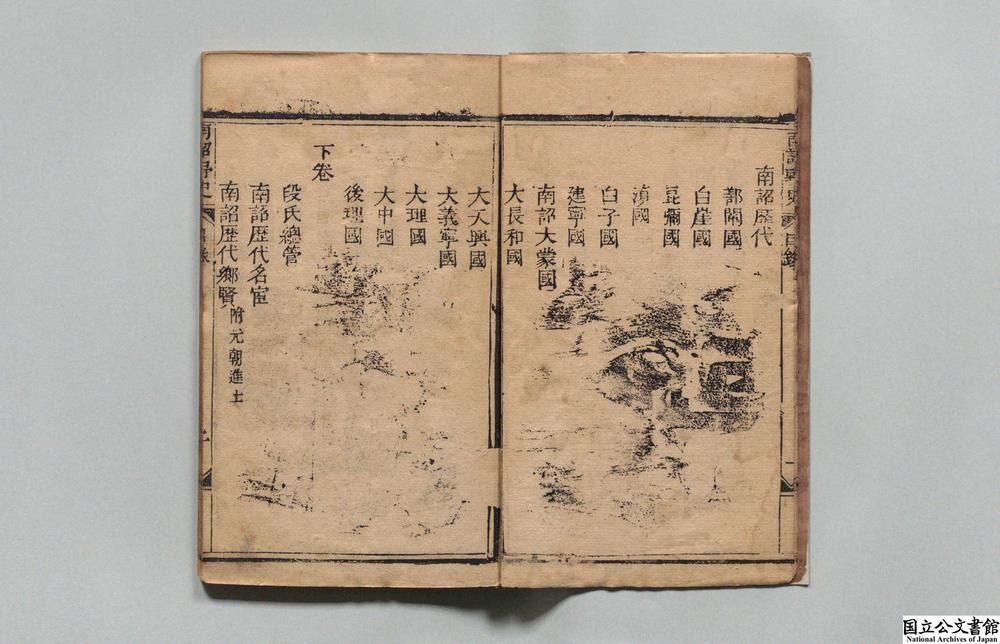 南詔野史 目錄
南詔歴代
鄯闡國
白崖國
昆彌國
滇國
白子國
建寧國
南詔大蒙國
大長和國
大天興國
大義寧國
大理國
大中國
後理國
下卷
段氏總管
南詔歴代名宦
南詔歴代鄉賢 附元朝進士
南詔野史 目錄
国立公文書館
National Archives of Japan